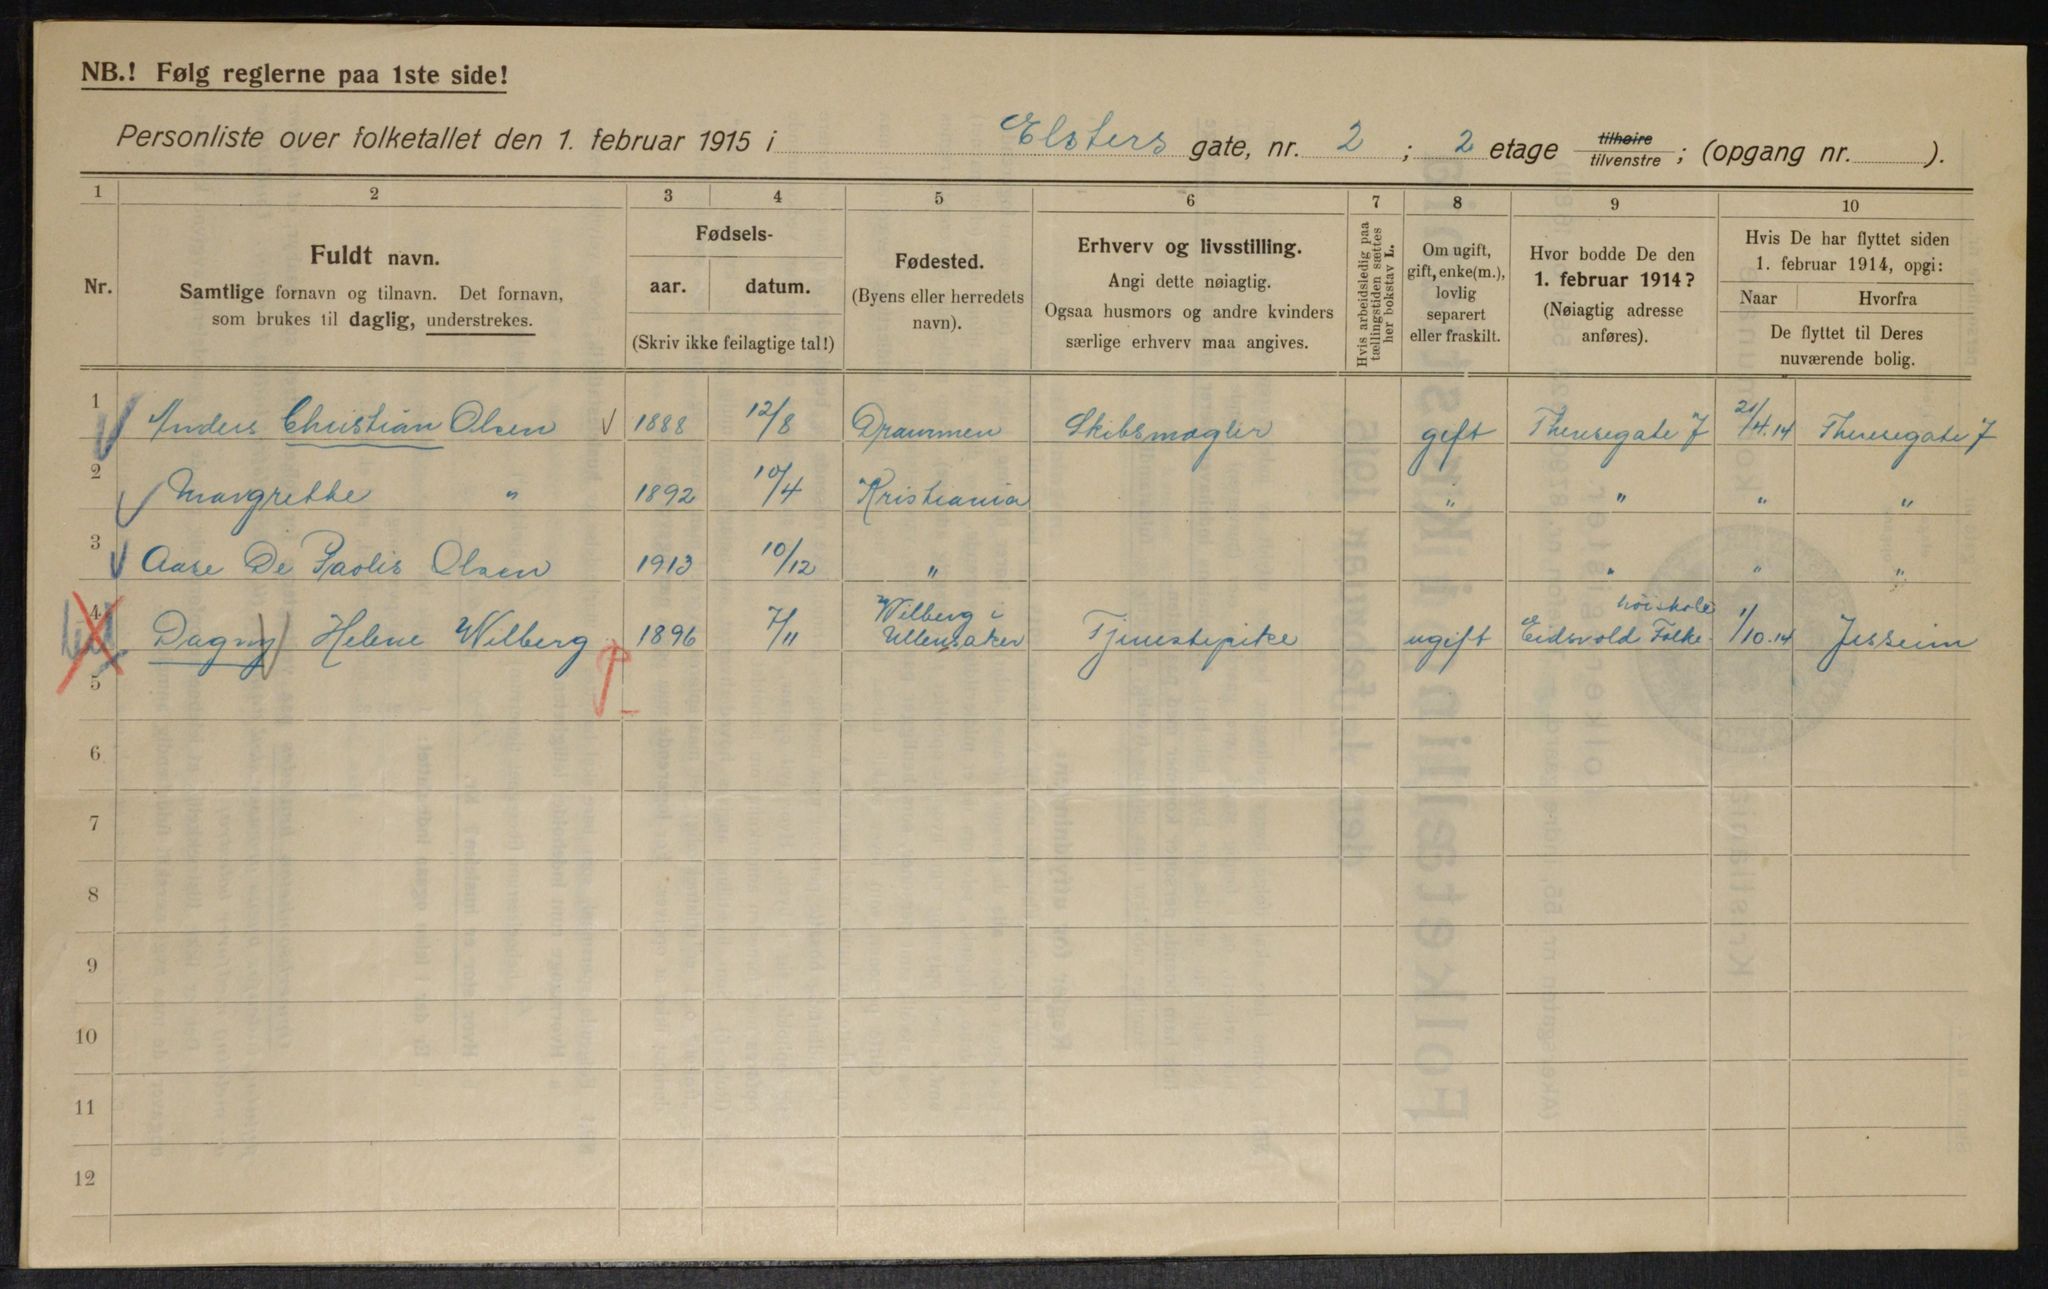 NB.! Følg reglerne paa 1ste side!
Personliste over folketallet den 1. februar 1915 i Elsters gate, nr. 2 ; 2 etage tilhøire tilvenstre ; (opgang nr. ).
1 2 3 4 5 6 7 8 9 10
Nr.
Fuldt navn.
Samtlige fornavn og tilnavn. Det fornavn,
som brukes til daglig, understrekes.
Fødsels-
aar. datum.
(Skriv ikke feilagtige tal!)
Fødested.
(Byens eller herredets
navn).
Erhverv og livsstilling.
Angi dette nøiagtig.
Ogsaa husmors og andre kvinders
særlige erhverv maa angives.
Hvis arbeidsledig paa
tællingstiden sættes
her bokstav L.
Om ugift,
gift, enke(m.),
lovlig
separert
eller fraskilt.
Hvor bodde De den
1. februar 1914?
(Nøiagtig adresse
anføres).
Hvis De har flyttet siden
1. februar 1914, opgi:
Naar Hvorfra
De flyttet til Deres
nuværende bolig.
1 Anders Christian Olsen 1888 12/8 Drammen Skibsmægler gift Theresegate 7 21/4.14 Theresegate 7
2 Margrethe " 1892 10/4 Kristiania " " " "
3 Aase De Paolis Olsen 1913 10/12 " " " "
4 Dagny Helene Wilberg 1896 7/11 Wilberg i Ullensaker Tjenestepike ugift Eidsvold Folkehøiskole 1/10.14 Jessheim
5
6
7
8
9
10
11
12